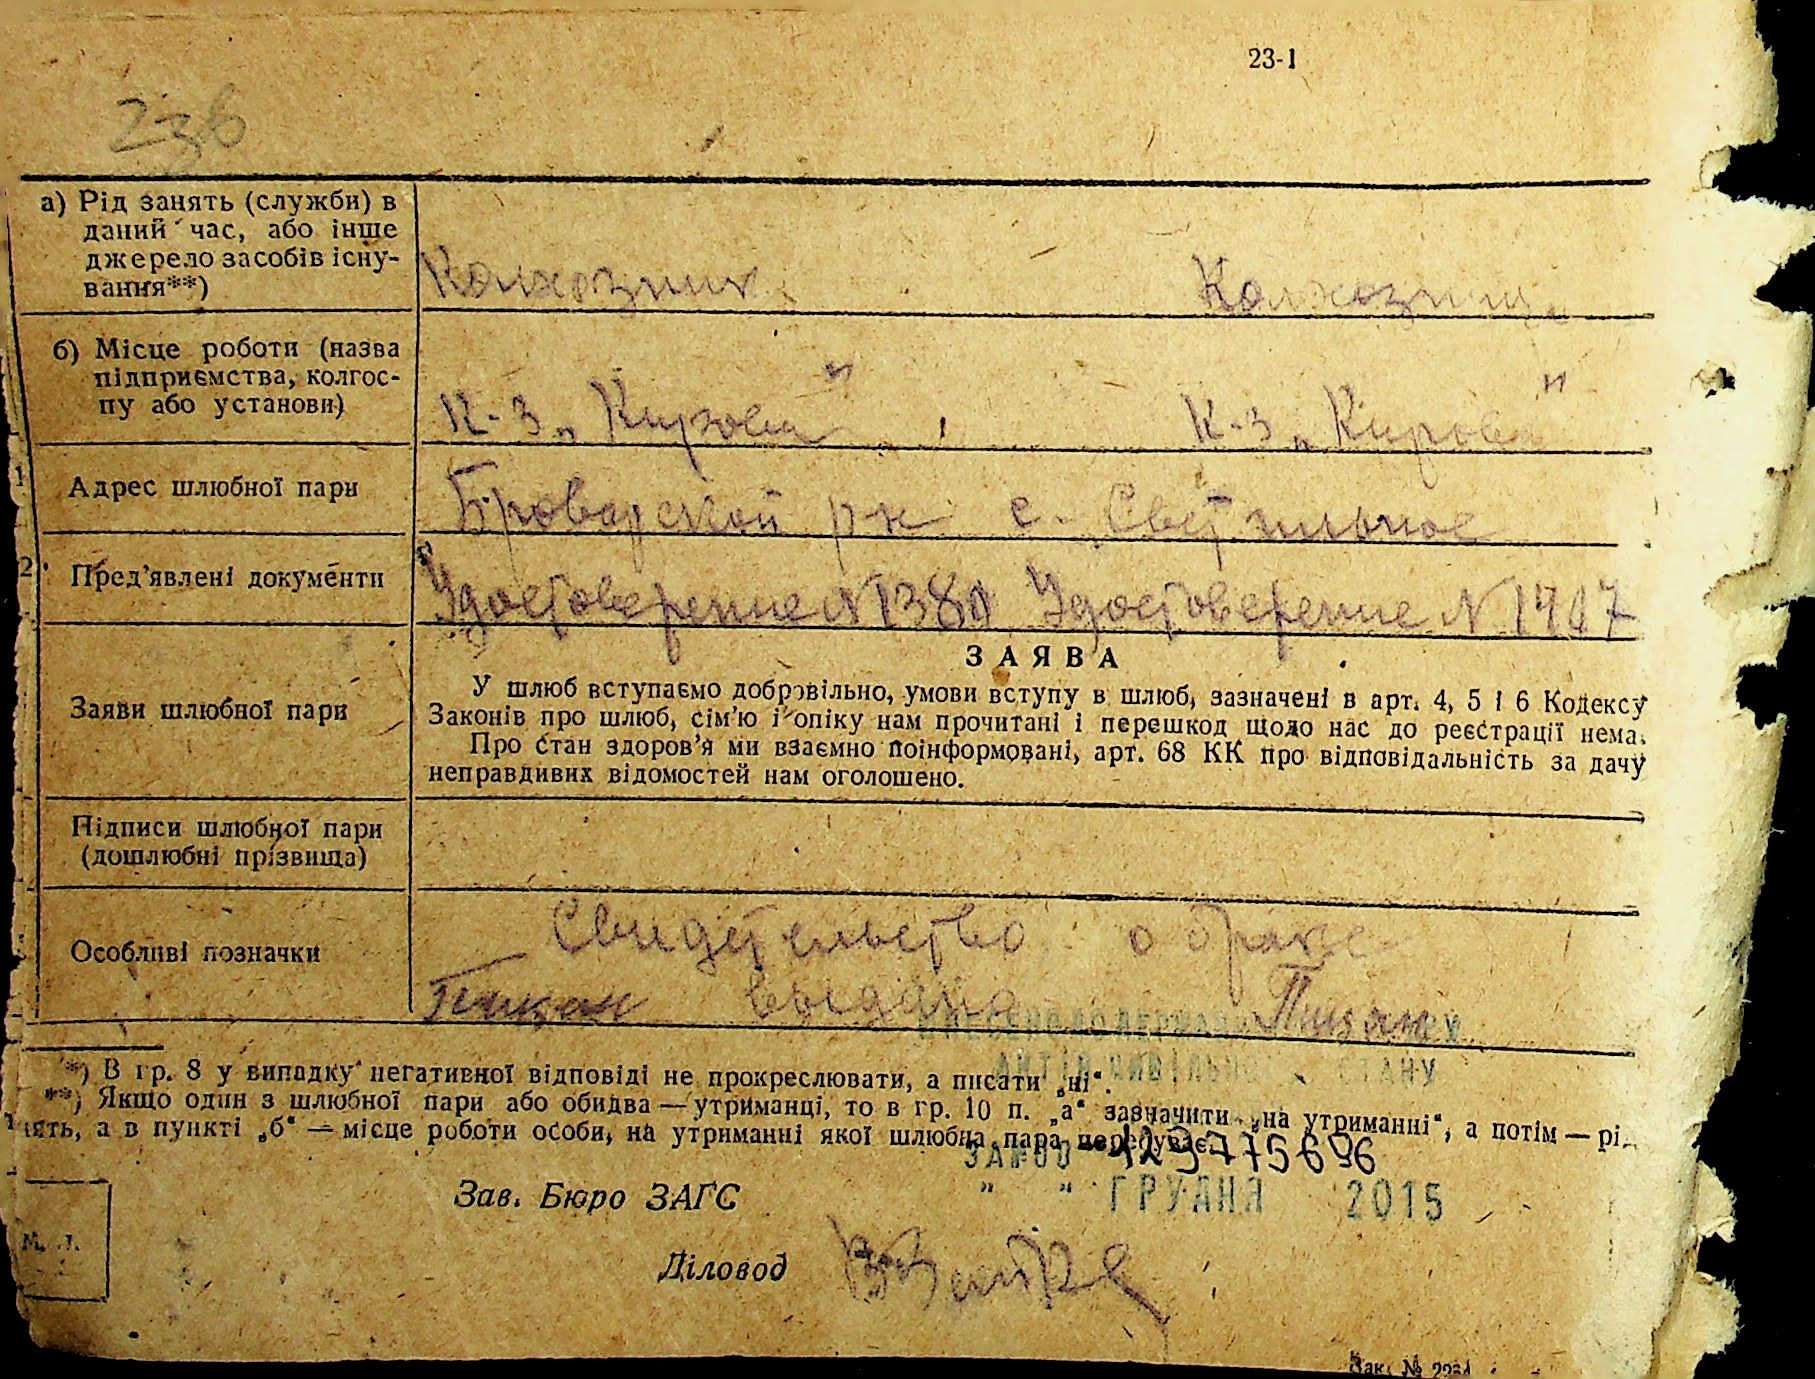 23-1
236
а) Рід занять (служби) в
даний час, або інше
джерело засобів існу-
вання**)
Колхозник Колхозница
б) Місце роботи (назва
підприємства, колгос-
пу або установи)
К-З „Кирова" К-З „Кирова"
1 Адрес шлюбної пари
Броварской р-н с. Светильное
2 Пред'явлені документи
Удостоверение N 1380 Удостоверение N 1747
ЗАЯВА
Заяви шлюбної пари
У шлюб вступаємо добровільно, умови вступу в шлюб, зазначені в арт. 4, 5 і 6 Кодексу
Законів про шлюб, сім'ю і опіку нам прочитані і перешкод щодо нас до реєстрації нема.
Про стан здоров'я ми взаємно поінформовані, арт. 68 КК про відповідальність за дачу
неправдивих відомостей нам оголошено.
Підписи шлюбної пари
(дошлюбні прізвища)
Особливі позначки
Свидетельство о браке
выдано
АКТІВ ЦИВІЛЬНОГО СТАНУ
*) В гр. 8 у випадку негативної відповіді не прокреслювати, а писати „ні".
**) Якщо один з шлюбної пари або обидва — утриманці, то в гр. 10 п. „а" зазначити „на утриманні", а потім — рі
нять, а в пункті „б" — місце роботи особи, на утриманні якої шлюбна пара перебуває.
ЗА № 00 123775696
" " ГРУДНЯ 2015
Зав. Бюро ЗАГС
М. П.
Діловод
Зак. №